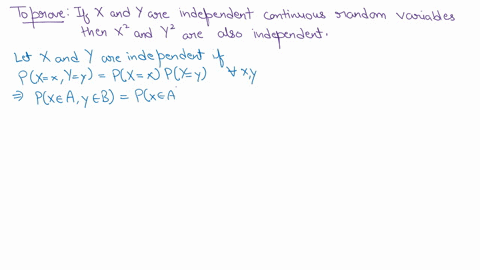 To prove: If X and Y are independent continuous random variables
then X² and Y² are also independent.
Let X and Y are independent if
P(X=x, Y=y) = P(X=x) P(Y=y) ∀ x,y
⇒ P(x∈A, y∈B) = P(x∈A